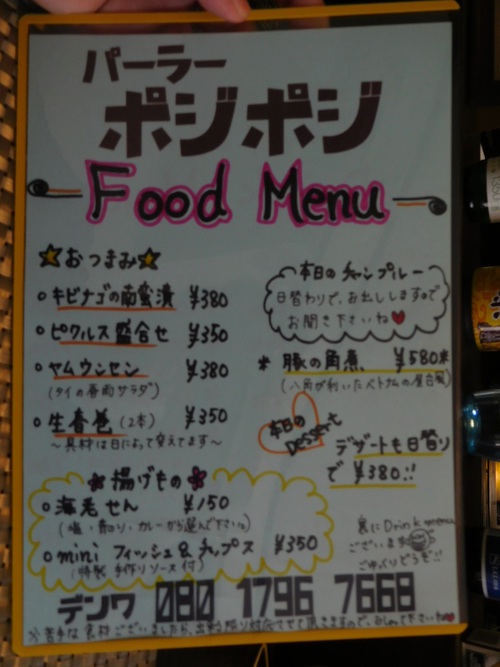 パーラー
ポジポジ
Food Menu
おつまみ
キビナゴの南蛮漬 ¥380
ピクルス盛合せ ¥350
ヤムウンセン ¥380
(タイの春雨サラダ)
生春巻(2本) ¥350
〜具材は日によって変えてます〜
揚げもの
海老せん ¥150
(塩・青のり・カレーから選んで下さい)
mini フィッシュ&チップス ¥350
(特製 手作りソース付)
本日のチャンプルー
日替わりで、お出ししますので
お聞き下さいね
豚の角煮 ¥580
(八角が利いたベトナムの屋台風)
本日の
Dessert
デザートも日替り
で ¥380!!
裏にDrink menu
ございます
ごゆっくりどうぞ!!
デンワ 080 1796 7668
※苦手な食材ございましたら、出来る限り対応させて頂きますので、